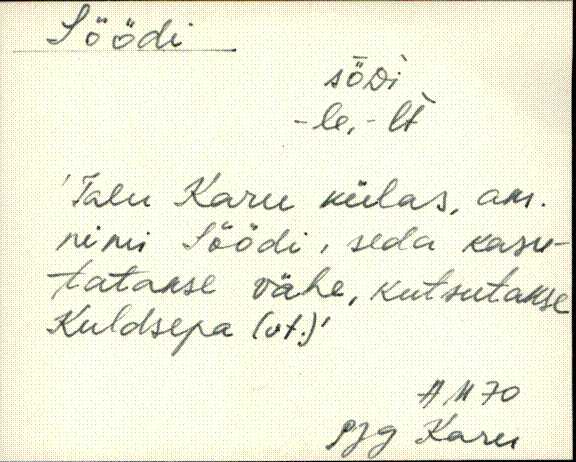 Söödi
sȫDi
-le, -lt
'Talu Karu külas, am.
nimi Söödi, seda kasu-
tatakse vähe, kutsutakse
Kuldsepa (vt.)'
AM 70
PJg Karu